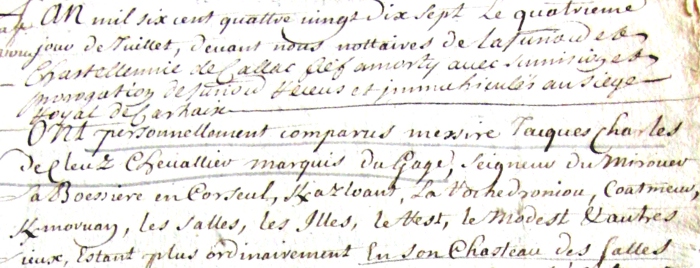 L'AN mil six cent quattre vingt dix sept Le quatrieme
jour de Juillet, devant nous nottaires de la Jurisdi et
Chastellennie de Callac fief amorty avec sumission et
prorogation de Jurisd receus et immatriculés au siege
Royal de Carhaix
Ont personnellement comparus messire Jacques Charles
de Cleuz Chevallier marquis du Gage, seigneur du Mirouer
La Boessiere en Corseul, La Rochedroniou, Coatmeur,
Kmorvan, les salles, les Illes, le Hest, le Modest & autres
lieux, Estant plus ordinairement En son Chasteau des salles